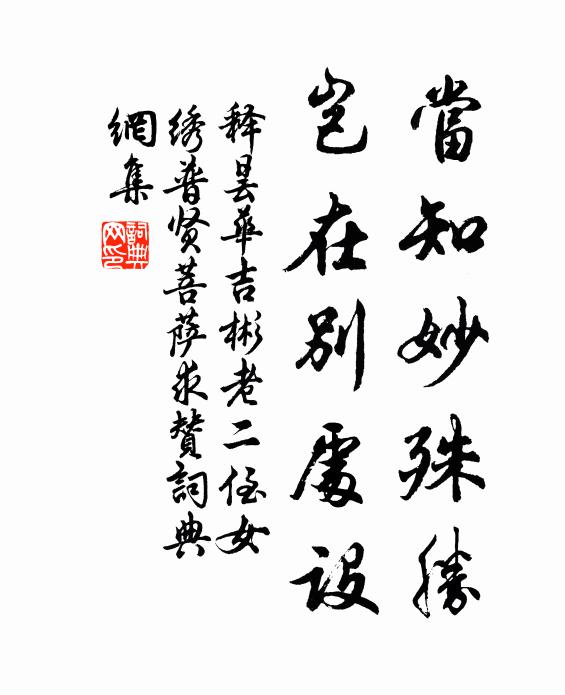 當知妙殊勝
豈在別處設
释曇華吉彬老二侄女
绣普贤菩萨求贊詞典
網集
詞典
网印